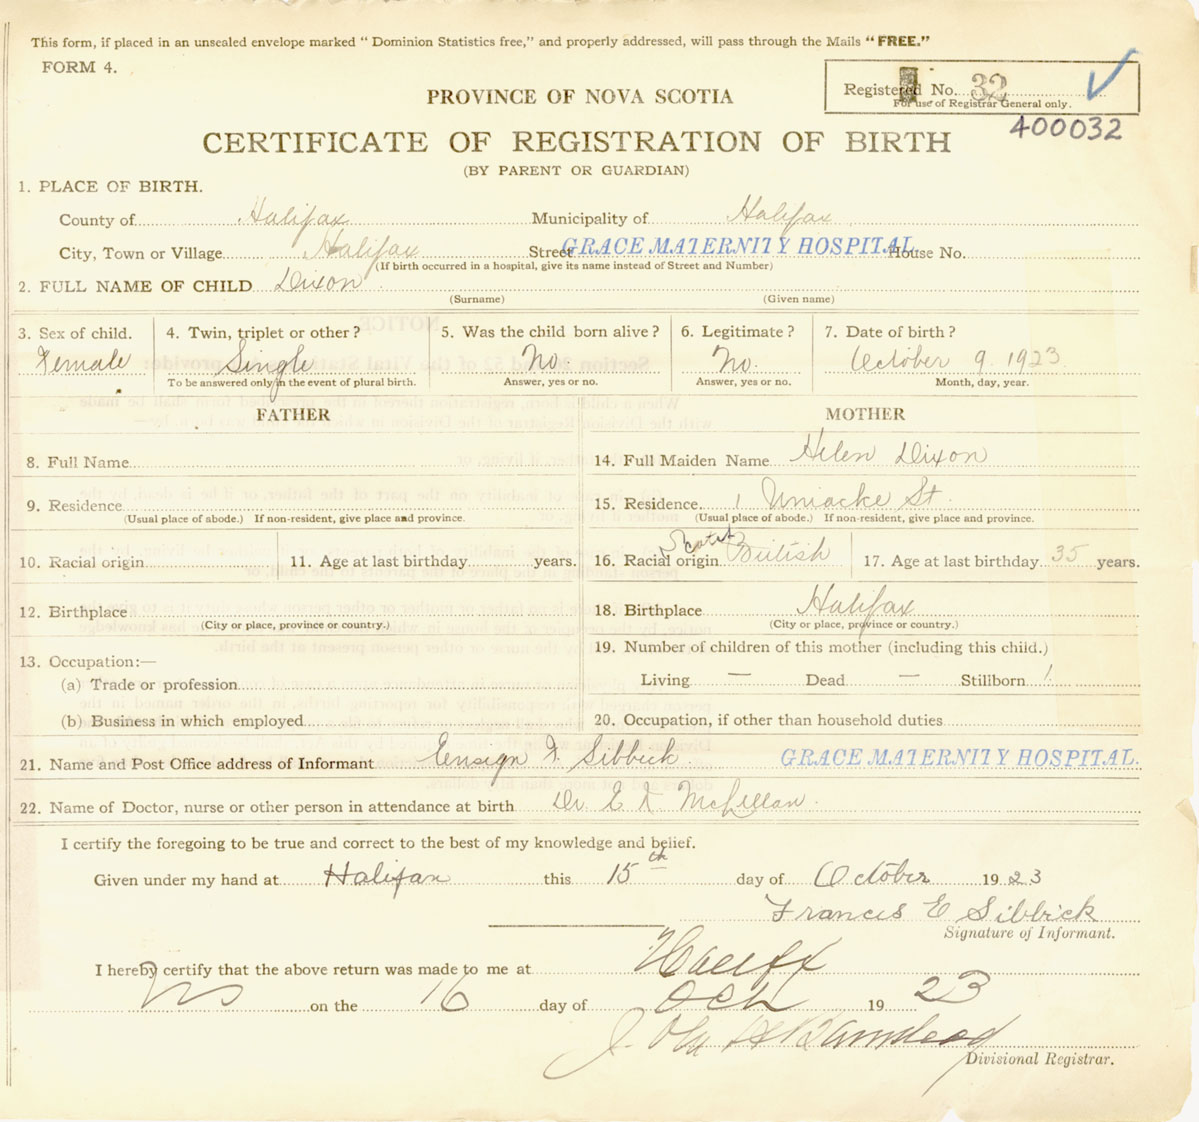 This form, if placed in an unsealed envelope marked "Dominion Statistics free," and properly addressed, will pass through the Mails "FREE."
FORM 4.
Registered No. 32
For use of Registrar General only.
400032
PROVINCE OF NOVA SCOTIA
CERTIFICATE OF REGISTRATION OF BIRTH
(BY PARENT OR GUARDIAN)
1. PLACE OF BIRTH.
County of Halifax Municipality of Halifax
City, Town or Village Halifax Street GRACE MATERNITY HOSPITAL. House No.
(If birth occurred in a hospital, give its name instead of Street and Number)
2. FULL NAME OF CHILD Dixon
(Surname) (Given name)
3. Sex of child. 4. Twin, triplet or other? 5. Was the child born alive? 6. Legitimate? 7. Date of birth?
Female Single No No. October 9. 1923
To be answered only in the event of plural birth. Answer, yes or no. Answer, yes or no. Month, day, year.
FATHER MOTHER
8. Full Name 14. Full Maiden Name Helen Dixon
9. Residence 15. Residence. 1 Uniacke St.
(Usual place of abode.) If non-resident, give place and province. (Usual place of abode.) If non-resident, give place and province.
10. Racial origin 11. Age at last birthday years. 16. Racial origin Scotch British 17. Age at last birthday 35 years.
12. Birthplace 18. Birthplace Halifax
(City or place, province or country.) (City or place, province or country.)
13. Occupation:— 19. Number of children of this mother (including this child.)
(a) Trade or profession Living — Dead — Stillborn 1
(b) Business in which employed 20. Occupation, if other than household duties
21. Name and Post Office address of Informant Ensign F. Sibbick. GRACE MATERNITY HOSPITAL.
22. Name of Doctor, nurse or other person in attendance at birth Dr. E. K. McLellan.
I certify the foregoing to be true and correct to the best of my knowledge and belief.
Given under my hand at Halifax this 15th day of October 1923
Frances E Sibbick
Signature of Informant.
I hereby certify that the above return was made to me at Halifx
NS on the 16 day of Oct 1923
Divisional Registrar.